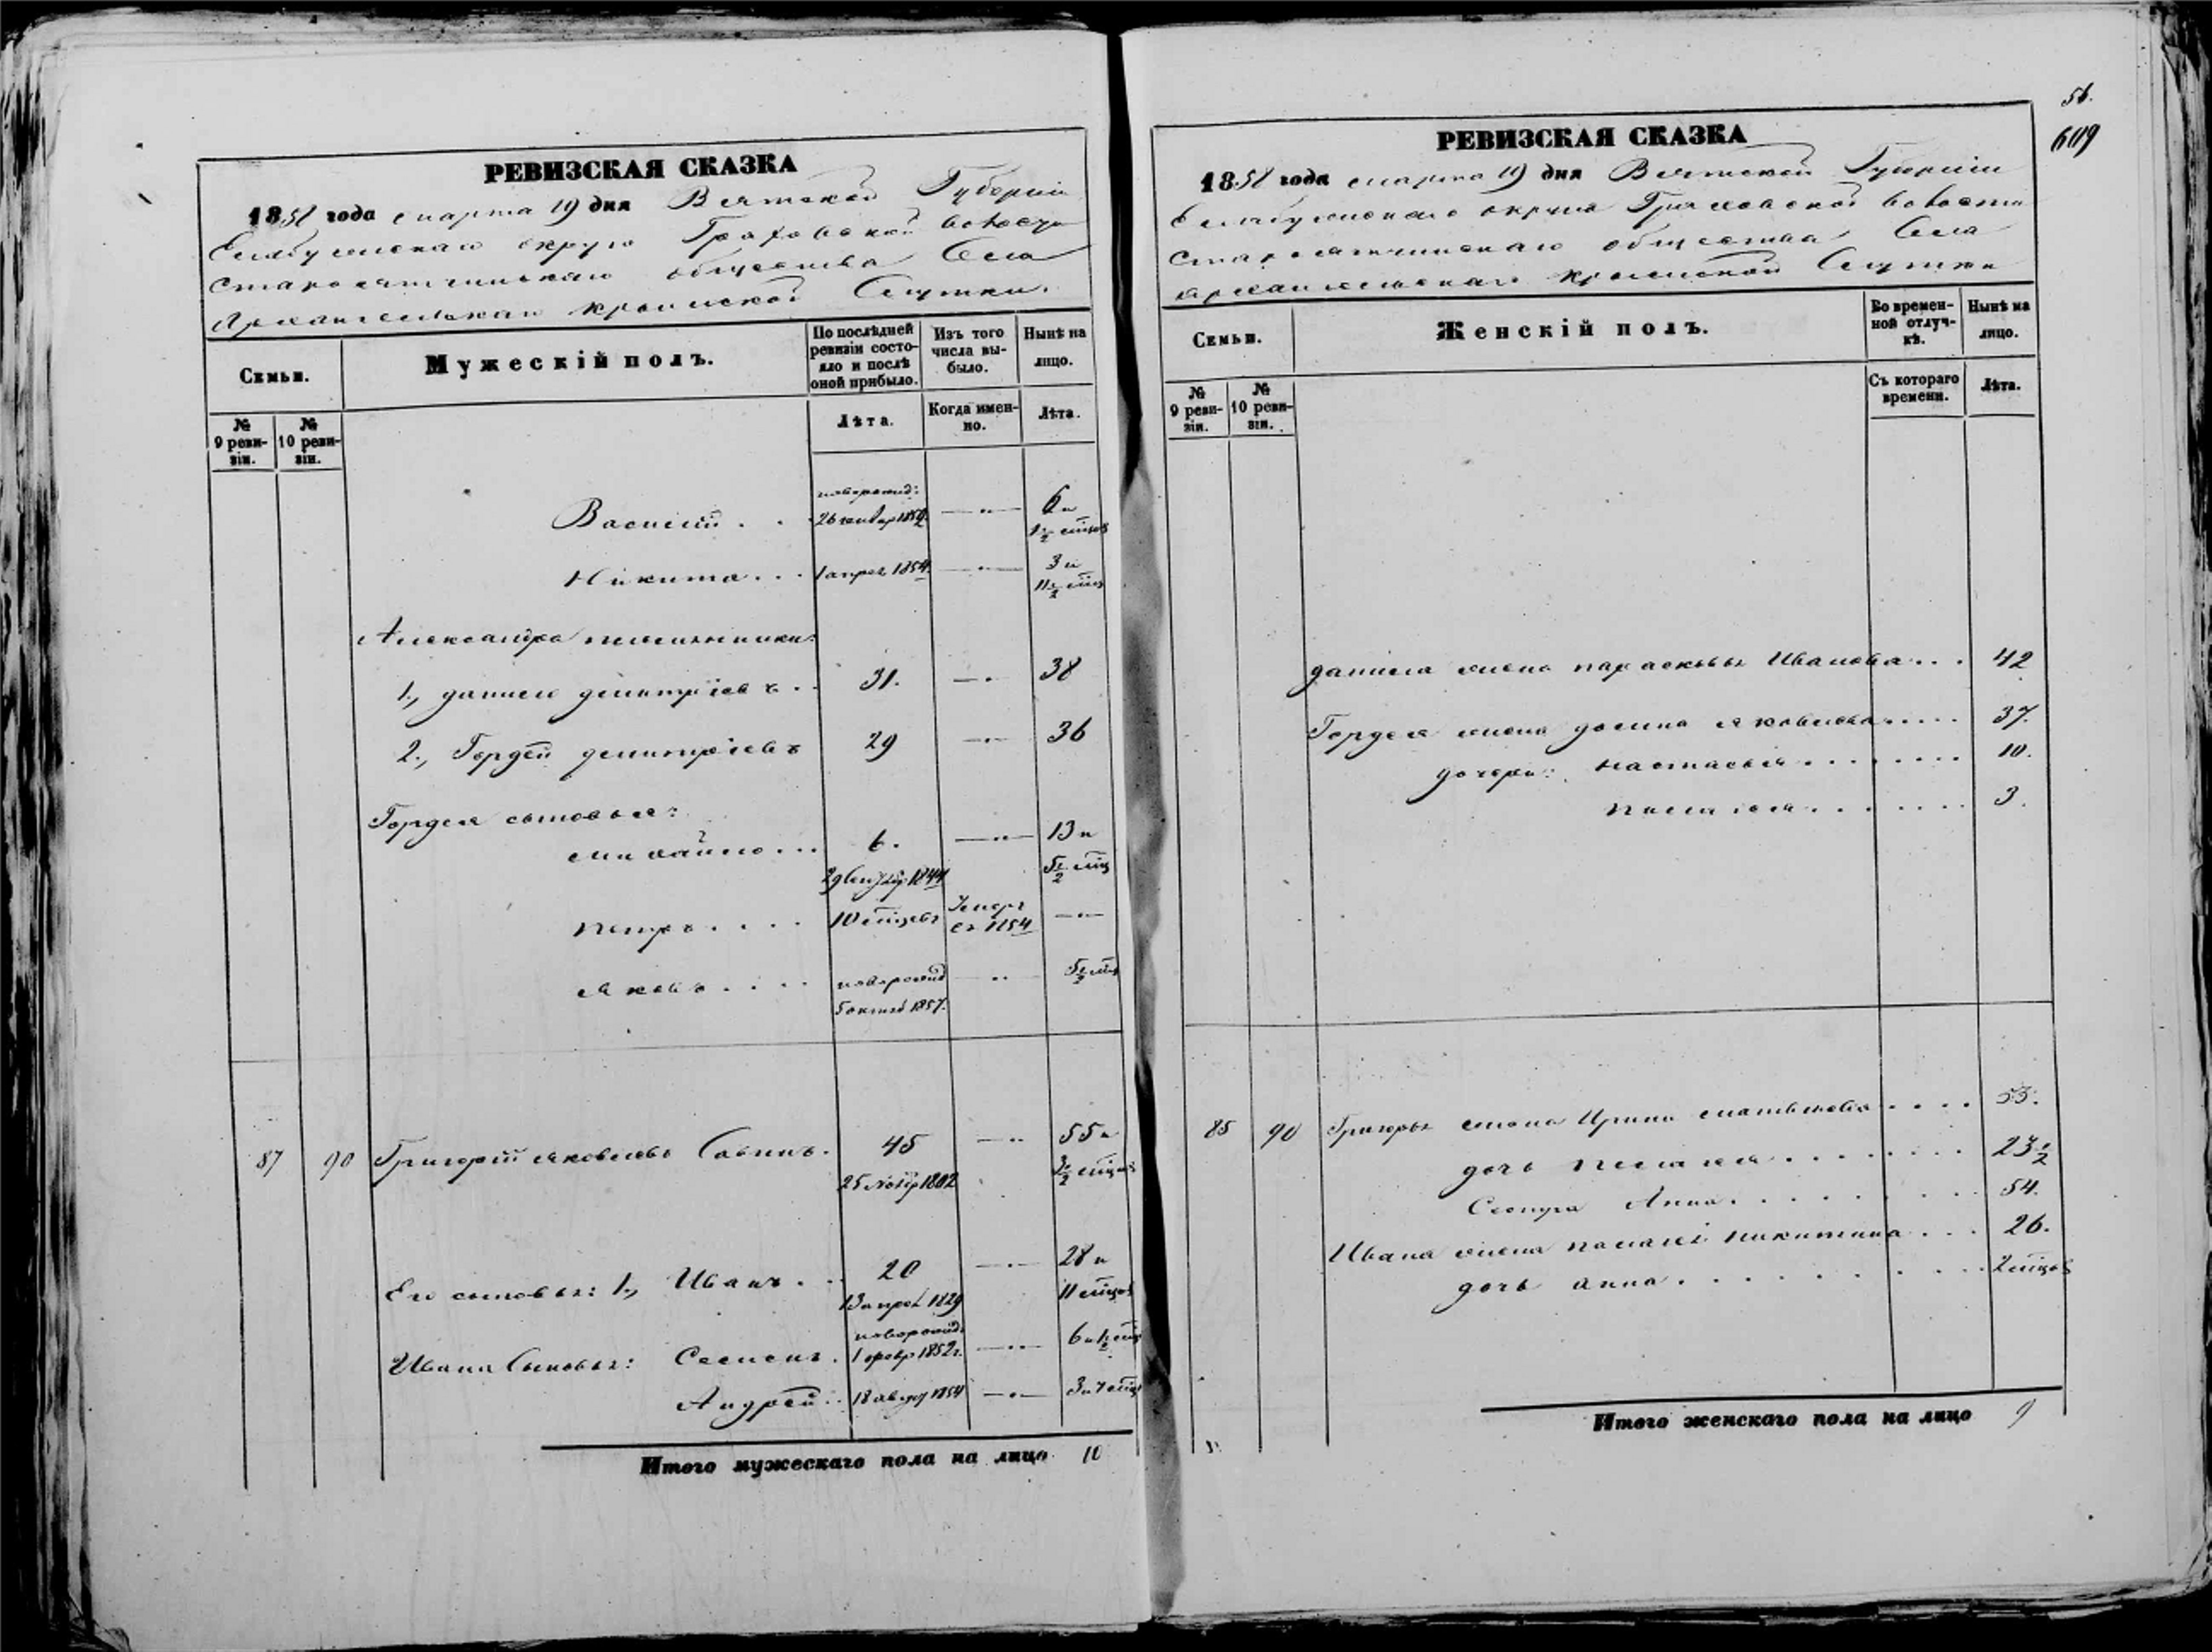 56.
609
РЕВИЗСКАЯ СКАЗКА
1858 года марта 19 дня Вятской Губерніи
Елабужскаго округа Граховской волости
Староятчинскаго общества Села
Архангельскаго Кромской Слутки.
Семьи.
Мужескій полъ.
По послѣдней ревизіи состояло и послѣ оной прибыло.
Изъ того числа выбыло.
Нынѣ на лицо.
№ 9 ревизіи.
№ 10 ревизіи.
Лѣта.
Когда именно.
Лѣта.
Василій . . новорожд: 26 генвар 1852. —"— 6 и 1½ мѣцов
Никита . . . 1 апрел 1854. —"— 3 и 11½ мѣц
Александра племянники:
1., Данило Дмитріевъ . . 31. —"— 38
2., Гордей Дмитріевъ 29 —"— 36
Гордея сыновья:
Михайло . . . 6. —"— 13 и
29 Сентяб 1844 5½ мѣц
Петръ . . . . 10 мѣцевъ Умеръ въ 1854 —"—
Яковъ . . . . новорожд 5 октяб 1857. —"— 5½ мѣц
87 90 Григорій Яковлевъ Савинъ. 45 —"— 55 и
25 Нояб 1802 3½ мѣцов
Его сыновья: 1., Иванъ . . 20 —"— 28 и
13 апрел 1829 11 мѣцов
Ивана Сыновья: Семенъ . новорожд: 1 февр 1852 г. —"— 6 и 1½ мѣц
Андрей . . 18 август 1854 —"— 3 и 7 мѣц
Итого мужескаго пола на лицо 10
РЕВИЗСКАЯ СКАЗКА
1858 года марта 19 дня Вятской Губерніи
Елабужскаго округа Граховской волости
Староятчинскаго общества Села
Архангельскаго Кромской Слутки
Семьи.
Женскій полъ.
Во временной отлучкѣ.
Нынѣ на лицо.
№ 9 ревизіи.
№ 10 ревизіи.
Съ котораго времени.
Лѣта.
Данила жена Парасковья Иванова . . . 42
Гордея жена Домна Яковлева . . . . . 37.
дочери: Настасья . . . . . . . . 10.
Пелагея . . . . . . . 3.
85 90 Григорья жена Ирина Матвеева . . . . 53.
дочь Пелагея . . . . . . . . 23½
Сестра Анна . . . . . . . . . 54.
Ивана жена Пелагея Никитина . . . 26.
дочь Анна . . . . . . . . . . 2 мѣцов
Итого женскаго пола на лицо 9